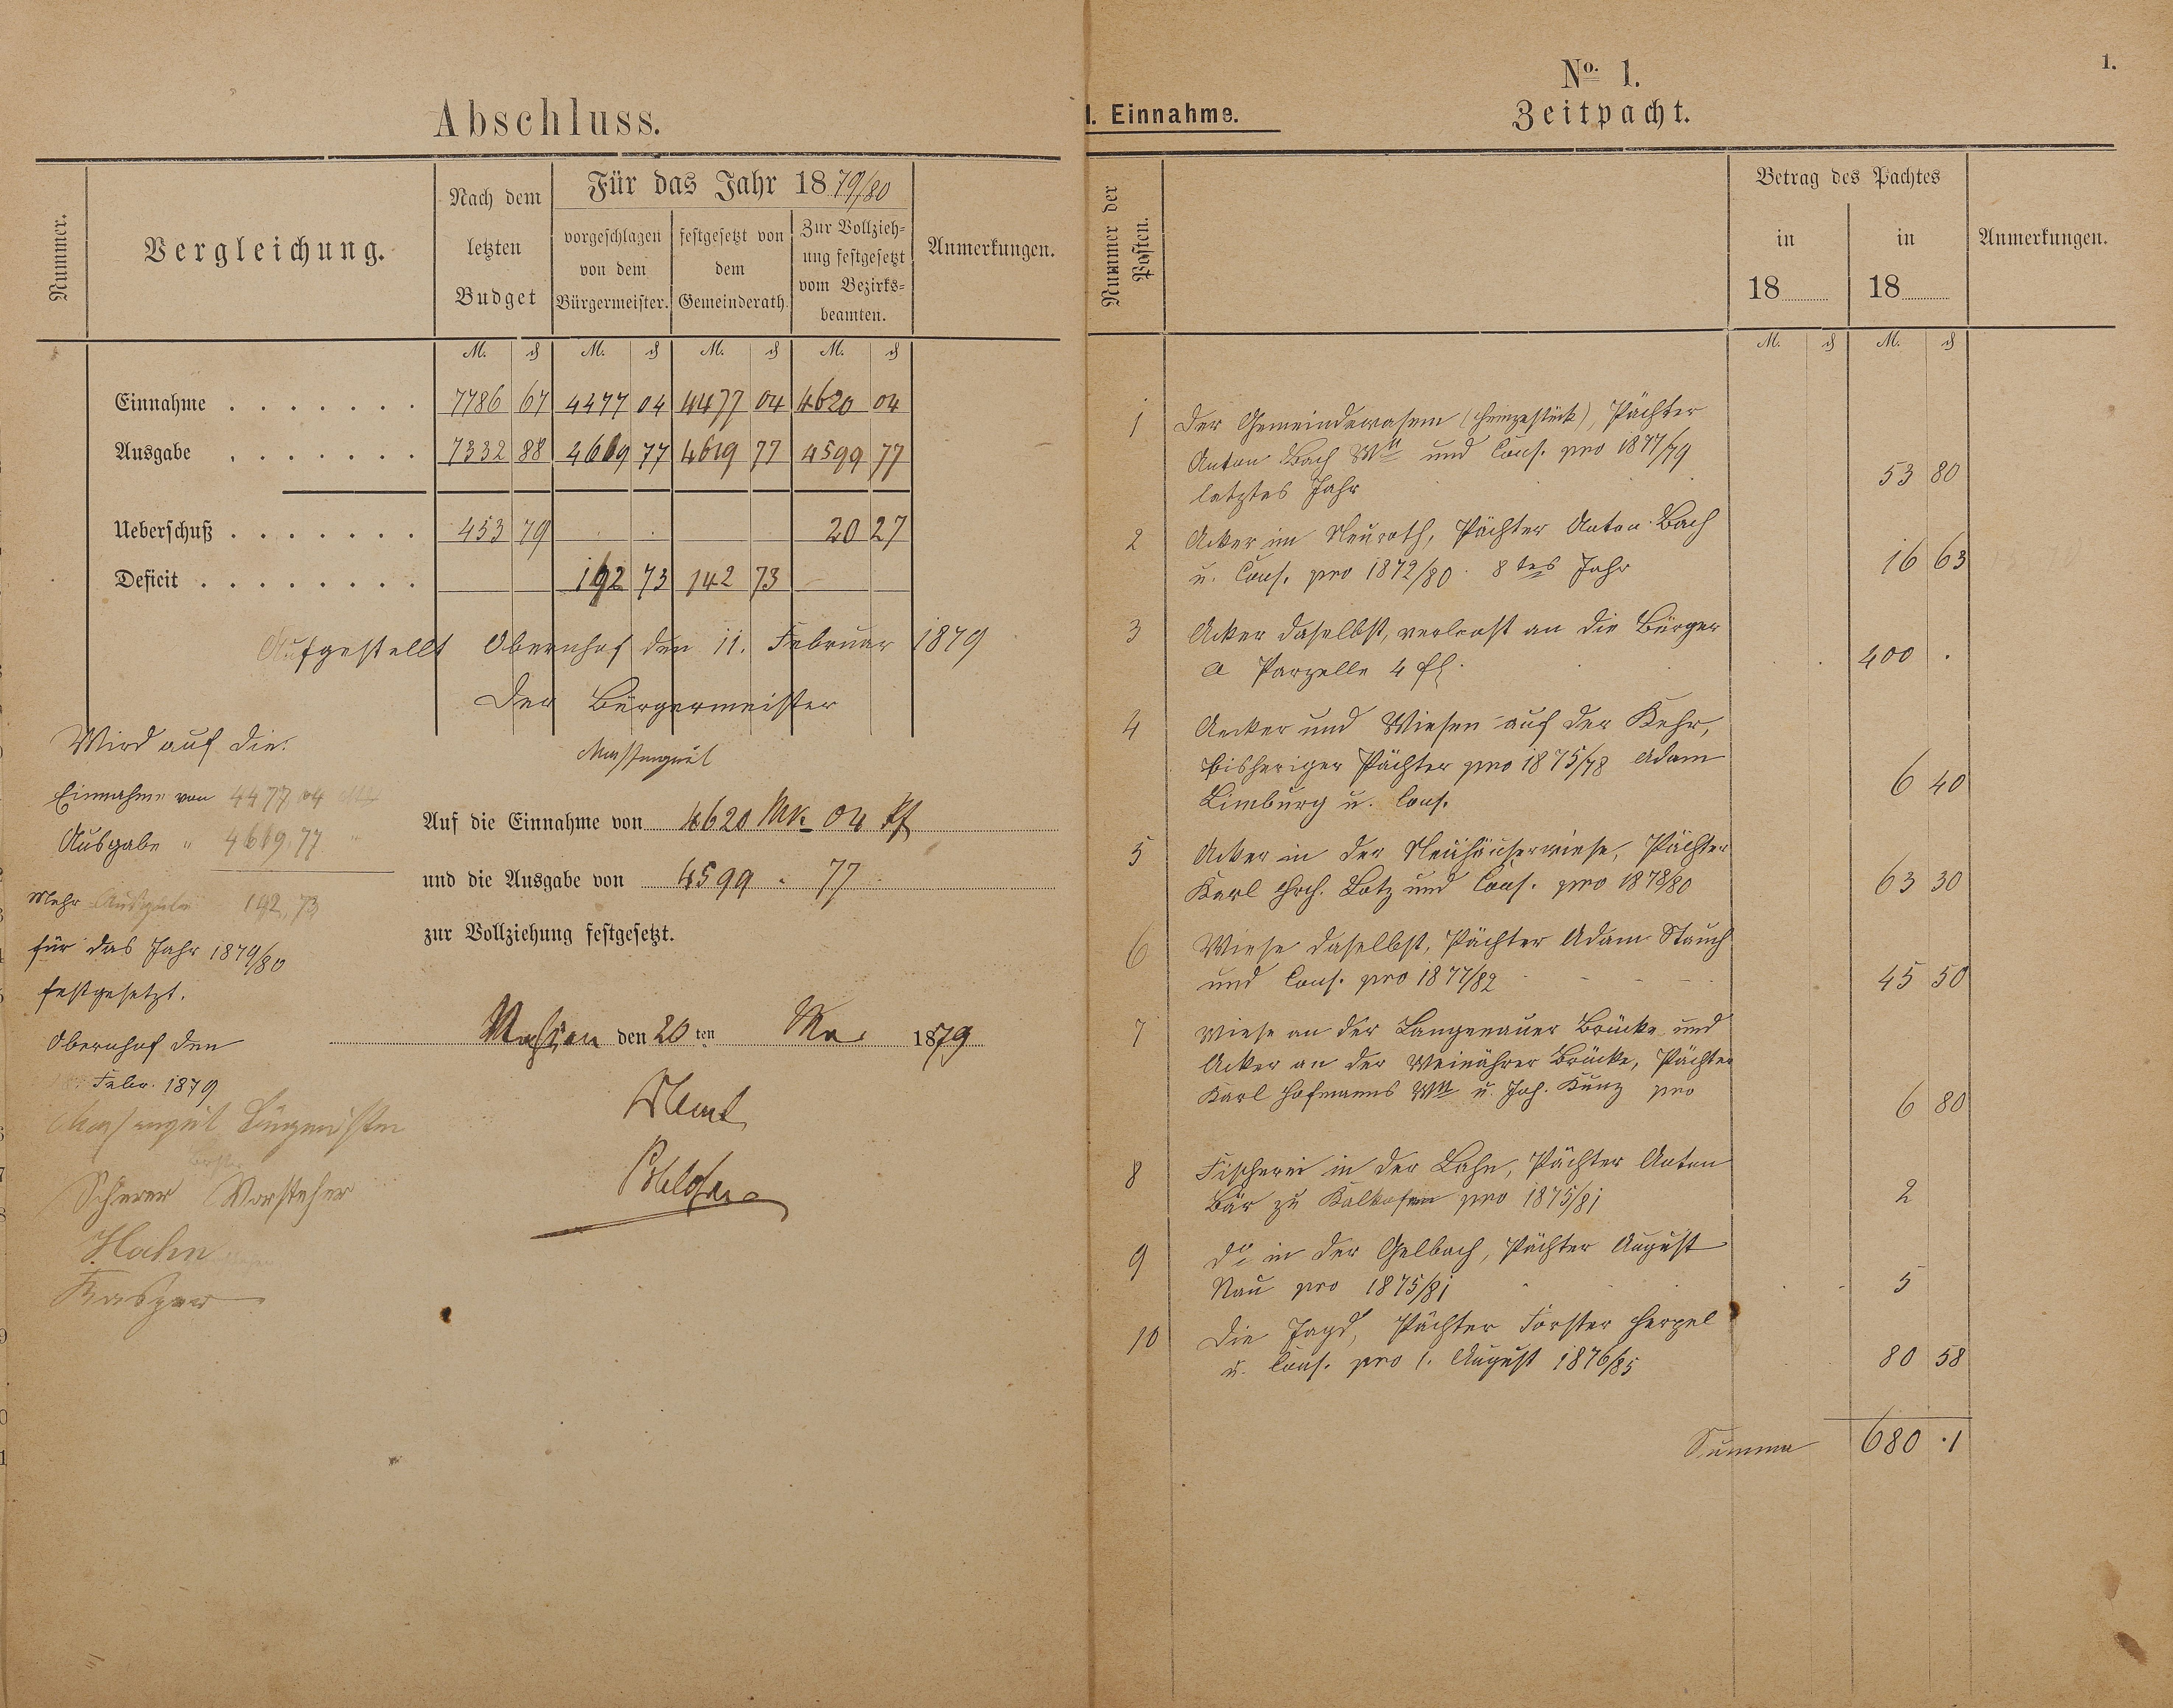 Abschluss.
Nummer.
Vergleichung.
Nach dem
letzten
Budget
Für das Jahr 1879/80
vorgeschlagen
von dem
Bürgermeister.
festgesetzt von
dem
Gemeinderath.
Zur Vollzieh-
ung festgesetzt
vom Bezirks-
beamten.
Anmerkungen.
M. ₰ M. ₰ M. ₰ M. ₰
Einnahme . . . . . . . 7786 67 4477 04 4477 04 4620 04
Ausgabe . . . . . . . 7332 88 4619 77 4619 77 4599 77
Ueberschuß . . . . . . . 453 79 20 27
Deficit . . . . . . . . 142 73 142 73
Aufgestellt Obernhof den 11. Februar 1879
Der Bürgermeister
Massengeil
Wird auf die
Einnahme von 4477 04
Ausgabe " 4619.77 "
Mehr Ausgabe 142,73
für das Jahr 1879/80
festgesetzt.
Obernhof den
Febr. 1879
Massengeil Bürgermstr
Scherer Vorsteher
Hahn
Kasper
Auf die Einnahme von 4620 Mk 04 Pf
und die Ausgabe von 4599 " 77
zur Vollziehung festgesetzt.
Nassau den 20ten Mai 1879
1.
I. Einnahme.
No. 1.
Zeitpacht.
Nummer der
Posten.
Betrag des Pachtes
in
18
in
18
Anmerkungen.
M. ₰ M. ₰
1 Der Gemeindewasem (Heinzestück), Pächter
Anton Bach Wtt und Cons. pro 1877/79
letztes Jahr 53 80
2 Acker im Neuroth, Pächter Anton Bach
u. Cons. pro 1872/80 8tes Jahr 16 63
3 Acker daselbst, verloost an die Bürger
a Parzelle 4 fl. 400 .
4 Aecker und Wiesen auf der Kehr,
bisheriger Pächter pro 1875/78 Adam
Limburg u. Cons. 6 40
5 Acker in der Neuhäuserwiese, Pächter
Karl Hrch. Lotz und Cons. pro 1878/80 63 30
6 Wiese daselbst, Pächter Adam Stauch
und Cons. pro 1877/82 45 50
7 Wiese an der Langenauer Brücke und
Acker an der Weinährer Brücke, Pächter
Karl Hofmanns Wtt u. Joh. Kunz pro 6 80
8 Fischerei in der Lahn, Pächter Anton
Bär zu Kalkofen pro 1875/81 2
9 do in der Gelbach, Pächter August
Nau pro 1875/81 5
10 Die Jagd, Pächter Förster Herpel
u. Cons. pro 1. August 1876/85 80 58
Summa 680 .1